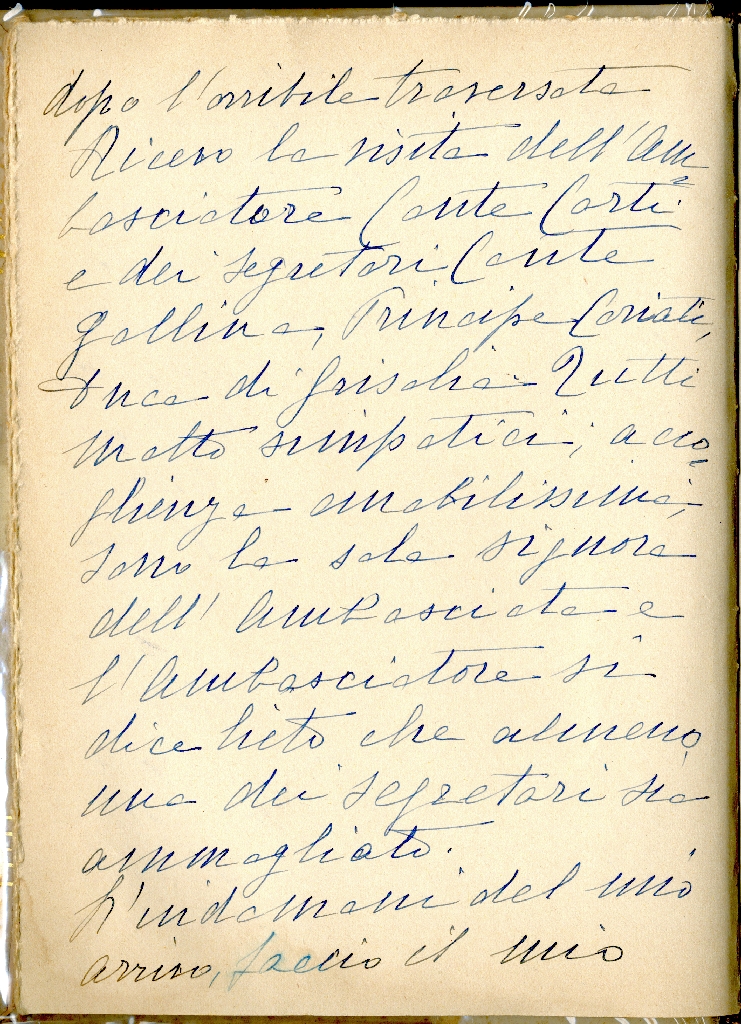 dopo l'orribile traversata
Ricevo la visita dell'Am=
basciatore Conte Corti
e dei segretari Conte
Gallina, Principe Cariati,
Duca di Grisolia. Tutti
molto simpatici; acco=
glienza amabilissima,
sono la sola signora
dell'Ambasciata e
l'Ambasciatore si
dice lieto che almeno
uno dei segretari sia
ammogliato.
L'indomani del mio
arrivo, faccio il mio